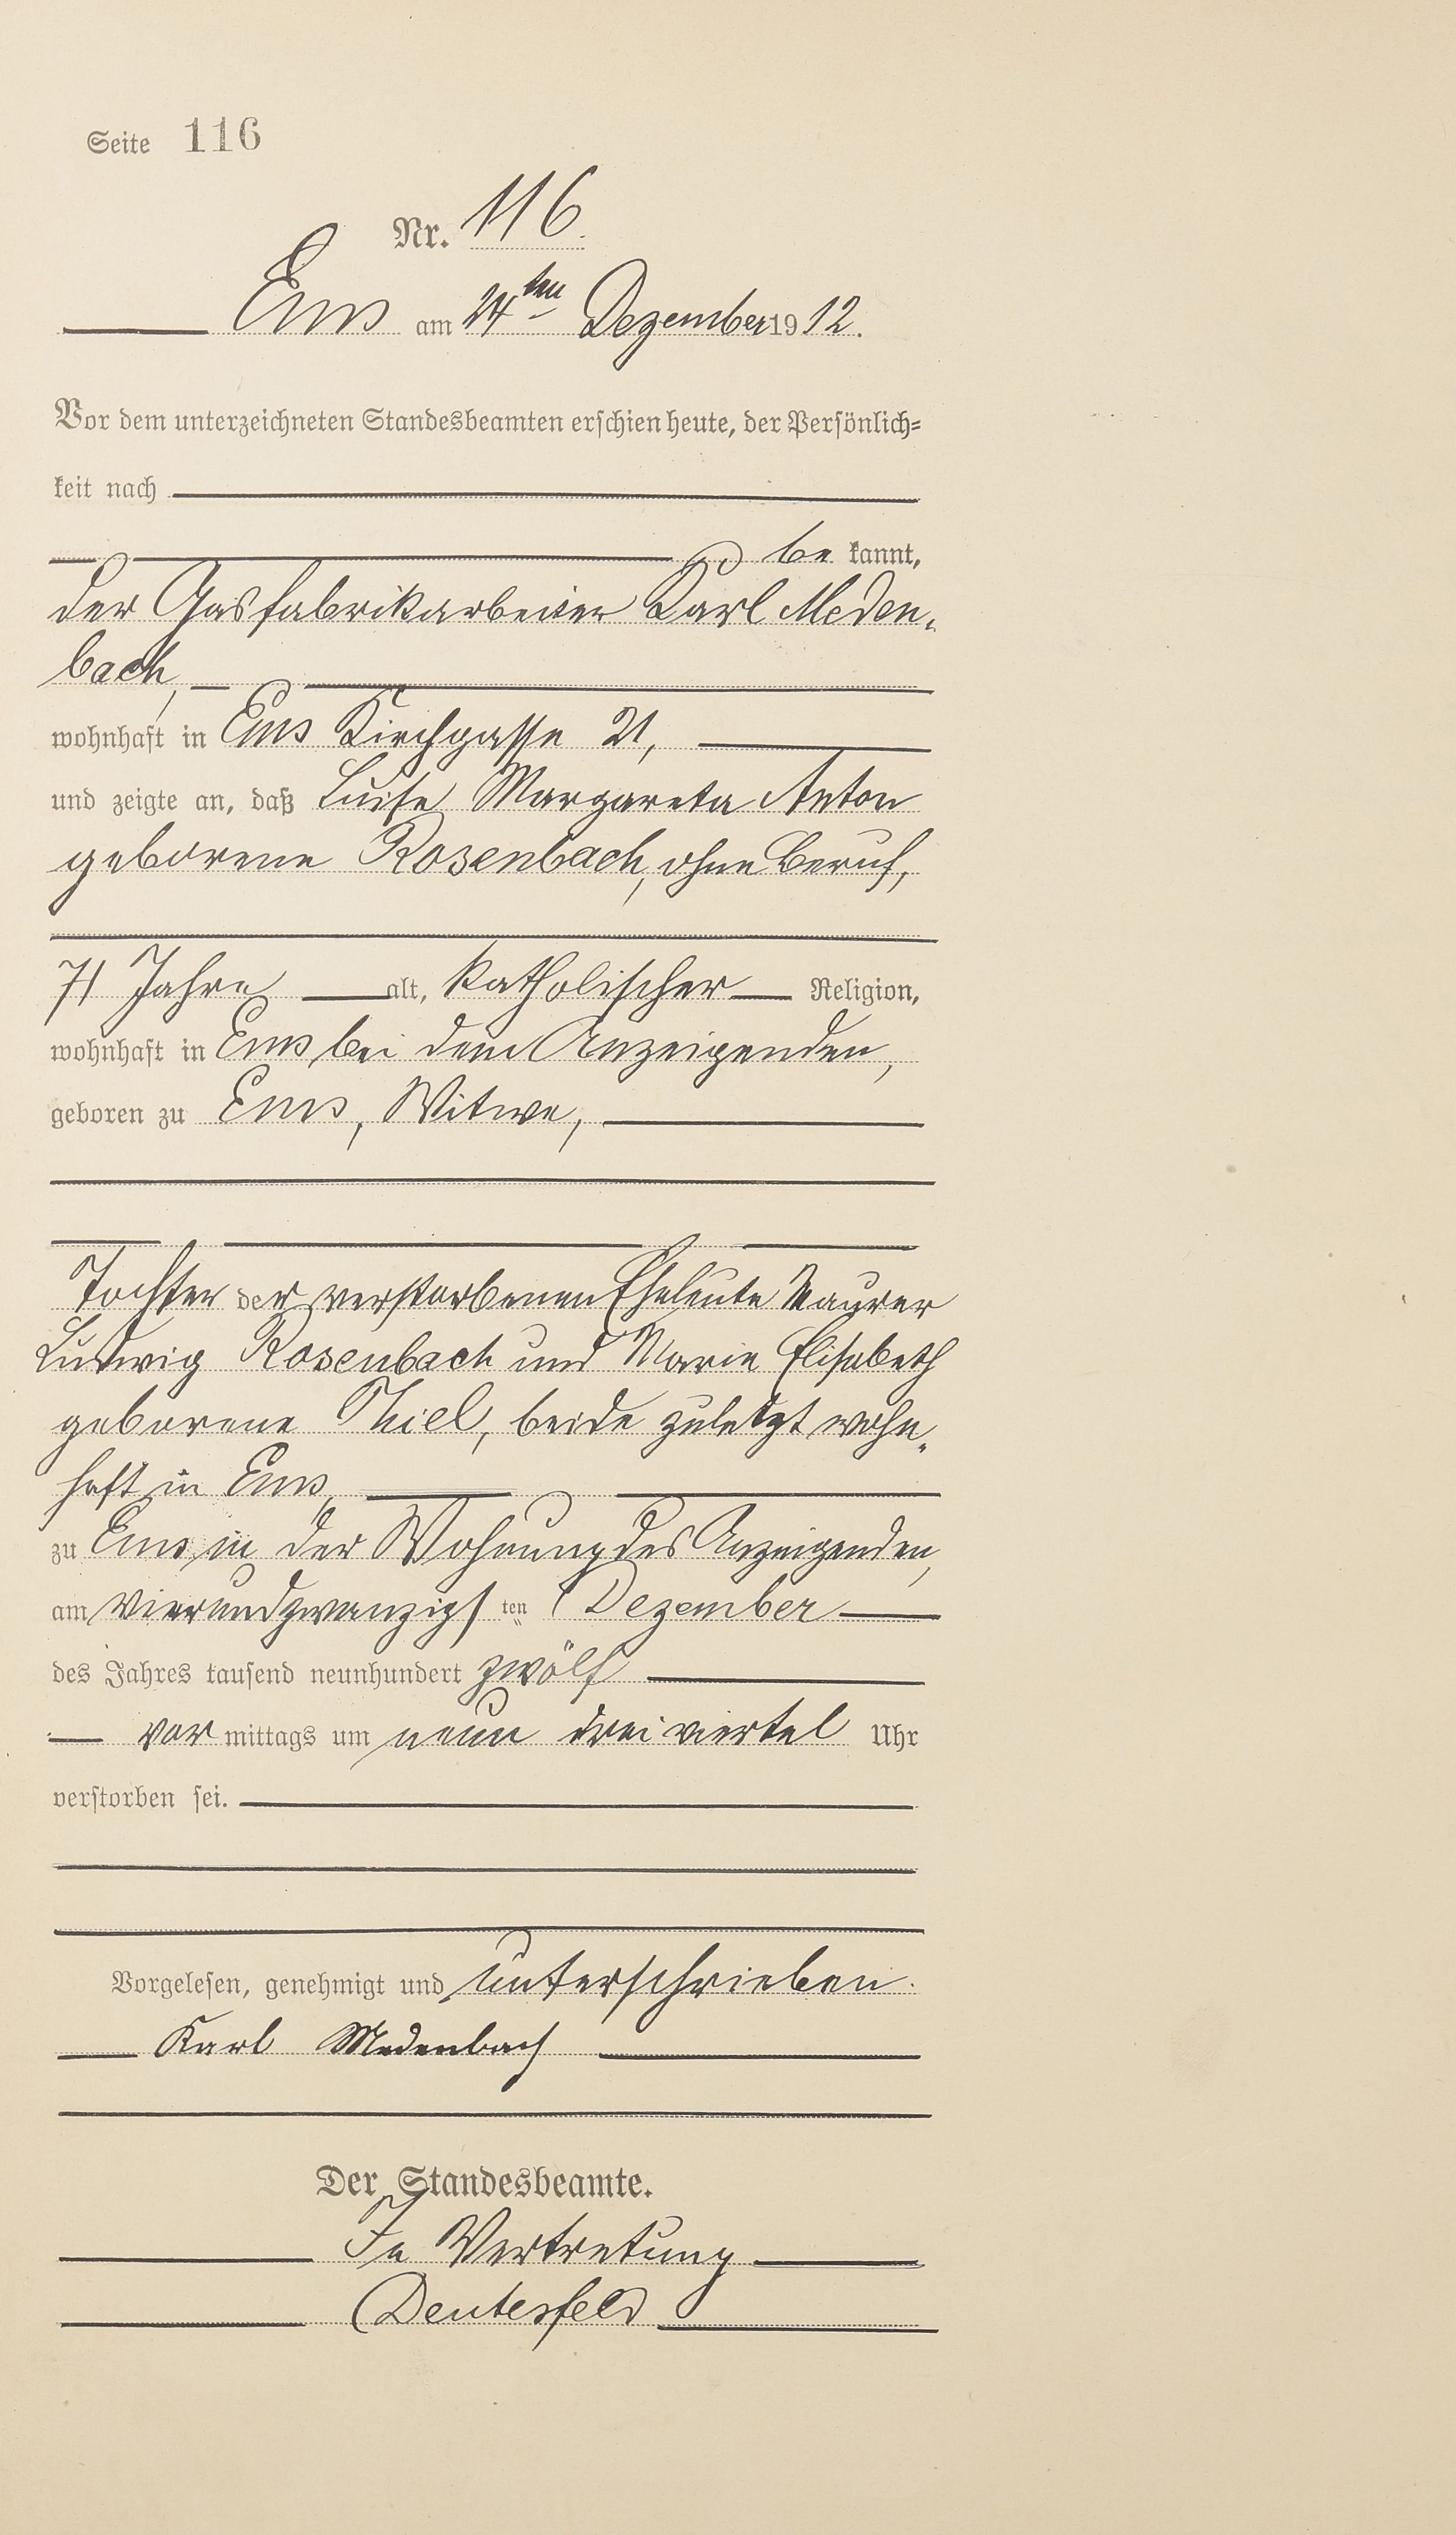 Seite 116
Nr. 116
Ems am 24ten Dezember 1912.
Vor dem unterzeichneten Standesbeamten erschien heute, der Persönlich=
keit nach
be kannt,
der Gasfabrikarbeiter Karl Meden,
bach,
wohnhaft in Ems Kirchgasse 21,
und zeigte an, daß Luise Margareta Anton
geborene Rosenbach, ohne Beruf,
71 Jahre alt, katholischer Religion,
wohnhaft in Ems bei dem Anzeigenden,
geboren zu Ems, Witwe,
Tochter der verstorbenen Eheleute Maurer
Ludwig Rosenbach und Marie Elisabeth
geborene Thiel, beide zuletzt wohn„
haft in Ems,
zu Ems, in der Wohnung des Anzeigenden,
am vierundzwanzigs ten Dezember
des Jahres tausend neunhundert zwölf
vor mittags um neun dreiviertel Uhr
verstorben sei.
Vorgelesen, genehmigt und unterschrieben.
Karl Medenbach
Der Standesbeamte.
In Vertretung
Deutesfeld